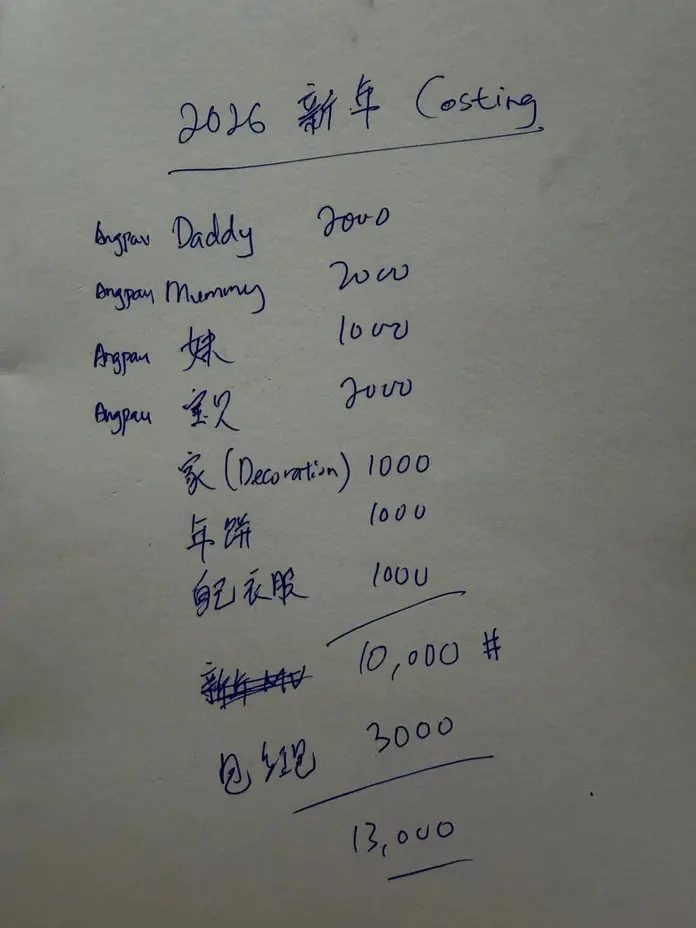 2026 新年 Costing
Angpau Daddy 2000
Angpau Mummy 2000
Angpau 妹 1000
Angpau 宝贝 2000
家 (Decoration) 1000
年饼 1000
自己衣服 1000
10,000 #
包红包 3000
13,000